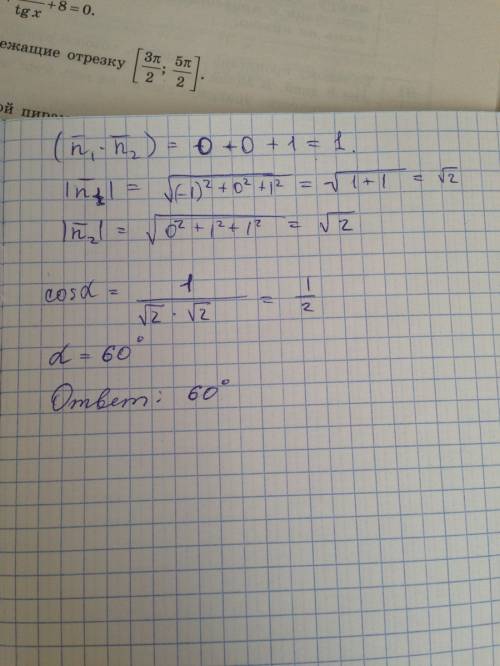 tg x +8=0.
ежащие отрезку [3π/2; 5π/2].
ой пирам
(n̄₁ · n̄₂) = 0 + 0 + 1 = 1.
|n̄₁| = √((-1)² + 0² + 1²) = √(1 + 1) = √2
|n̄₂| = √(0² + 1² + 1²) = √2
cosα = 1/(√2 · √2) = 1/2
α = 60°
Ответ: 60°